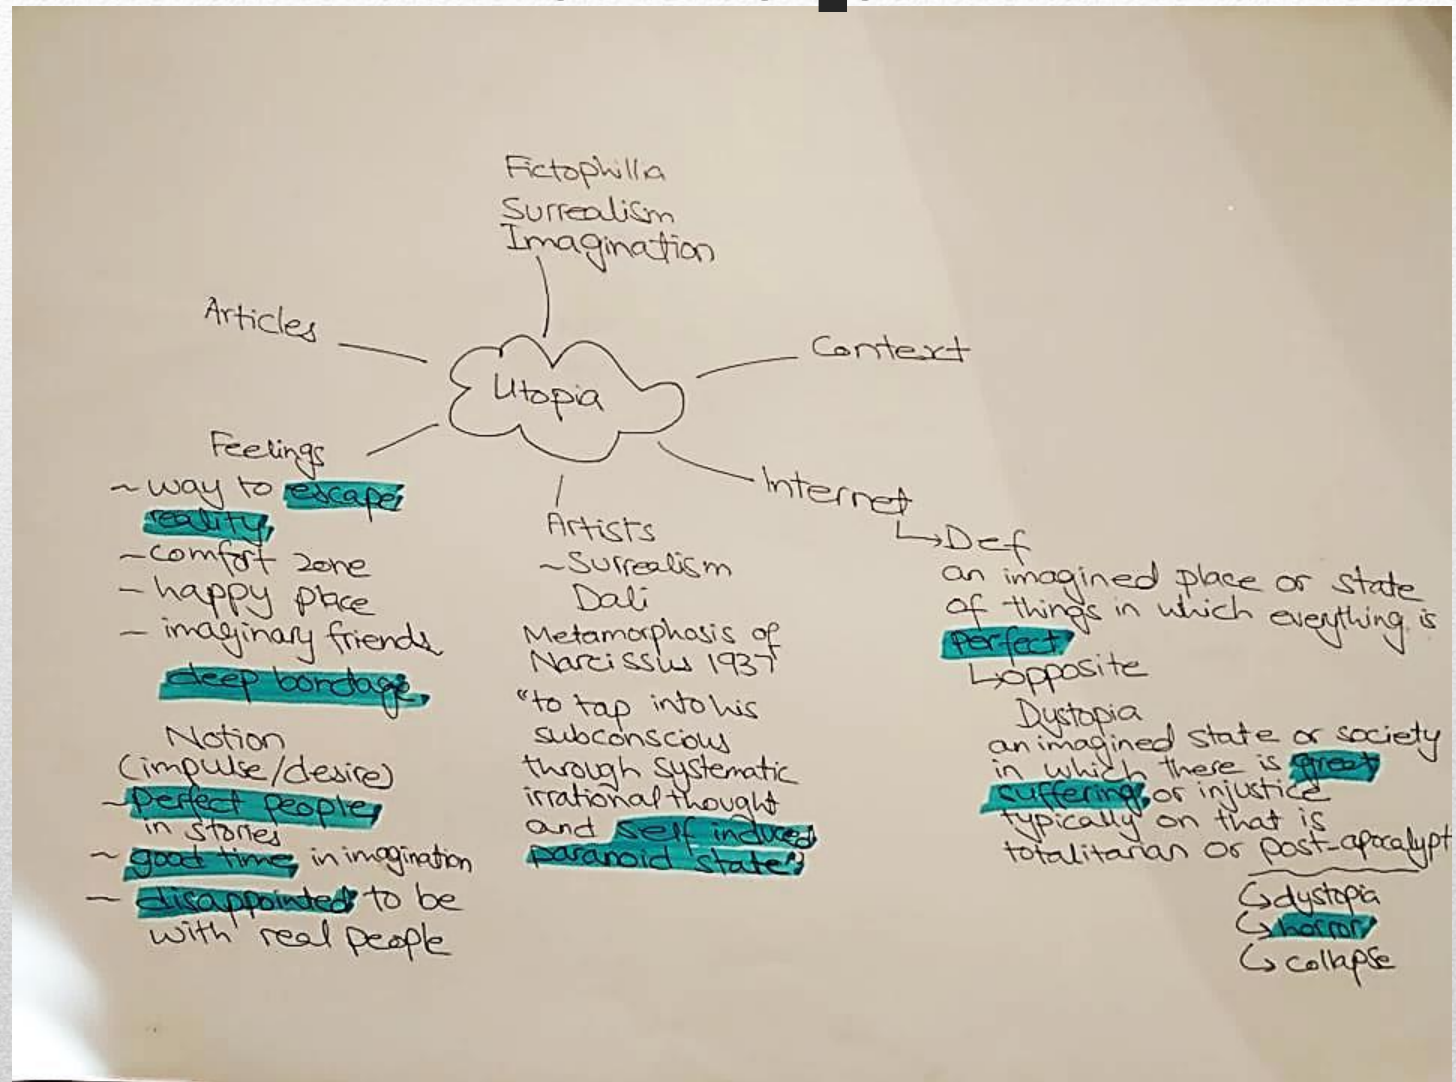 Fictophillia
Surrealism
Imagination
Articles
Context
Utopia
Feelings
~ way to escape
reality
~ comfort zone
- happy place
- imaginary friends
deep bondage
Notion
(impulse/desire)
~ perfect people
in stories
~ good time in imagination
- disappointed to be
with real people
Artists
~ Surrealism
Dali
Metamorphosis of
Narcissus 1937
"to tap into his
subconscious
through systematic
irrational thought
and self induced
paranoid state"
Internet
↳ Def
an imagined place or state
of things in which everything is
perfect
↳ opposite
Dystopia
an imagined state or society
in which there is great
suffering or injustice
typically on that is
totalitarian or post-apocalypt
↳ dystopia
↳ horror
↳ collapse